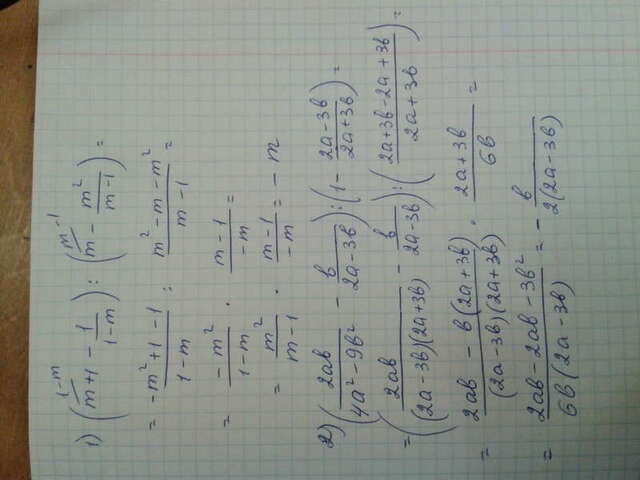 1) (m+1 - 1/(1-m)) : (m - m²/(m-1)) = [1-m above m+1; m-1 above m]
= (-m²+1-1)/(1-m) : (m²-m-m²)/(m-1) =
= -m²/(1-m) · (m-1)/(-m) =
= m²/(m-1) · (m-1)/(-m) = -m
2) (2ab/(4a²-9b²) - b/(2a-3b)) : (1 - (2a-3b)/(2a+3b)) =
= (2ab/((2a-3b)(2a+3b)) - b/(2a-3b)) : ((2a+3b-2a+3b)/(2a+3b)) =
= (2ab - b(2a+3b))/((2a-3b)(2a+3b)) · (2a+3b)/(6b) =
= (2ab-2ab-3b²)/(6b(2a-3b)) = - b/(2(2a-3b))